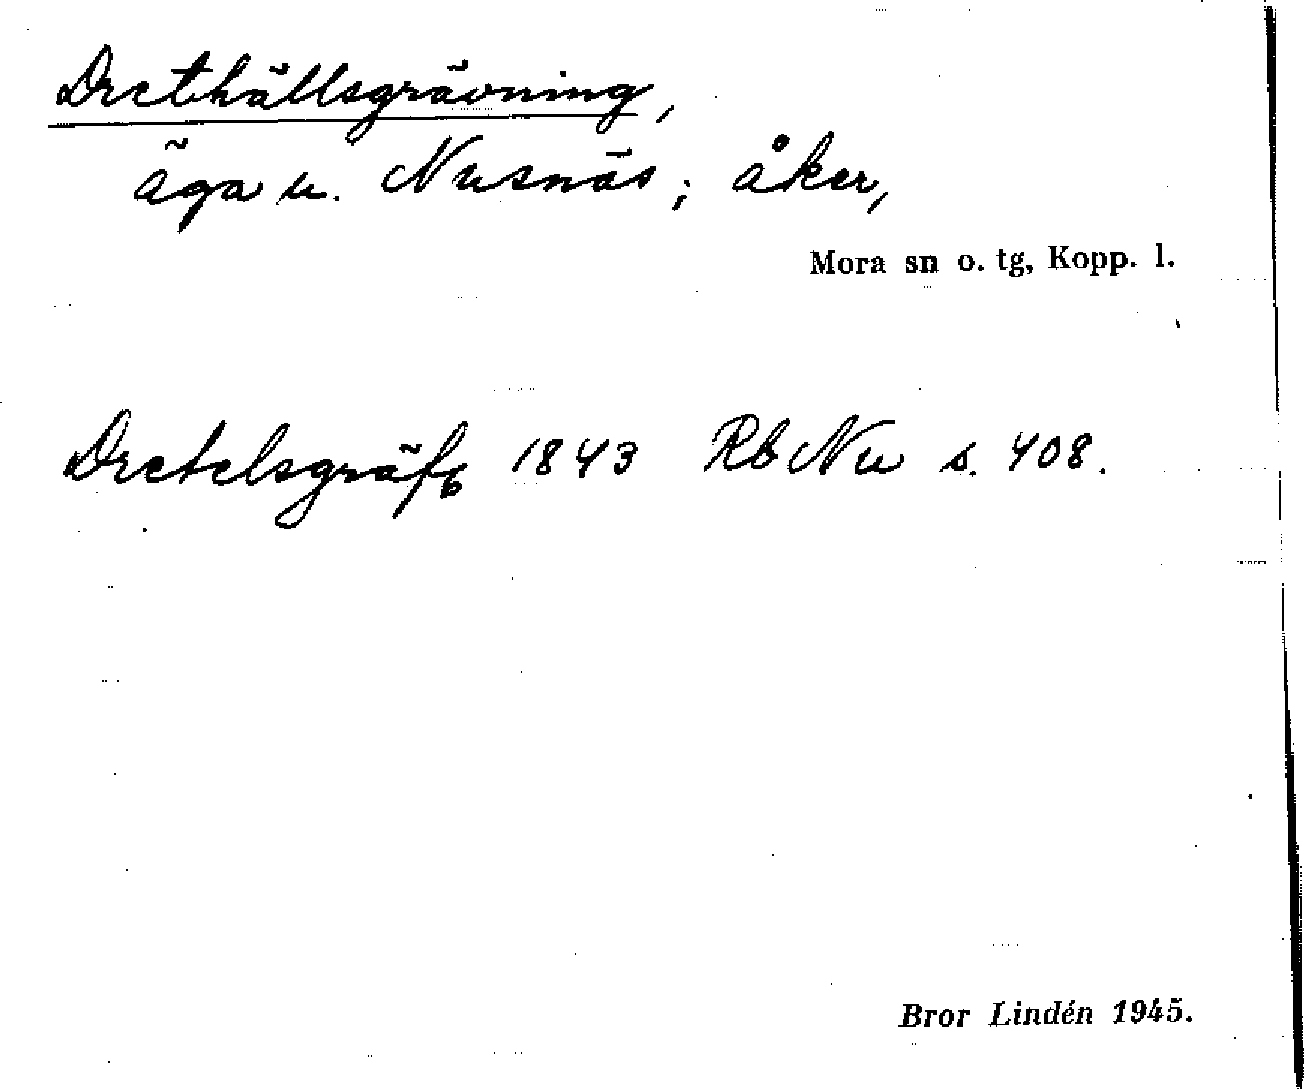 Drethällsgrävning,
äga u. Nusnäs; åker,
Mora sn o. tg, Kopp. l.
Dretelsgräfg 1843 RbNu s. 408.
Bror Lindén 1945.